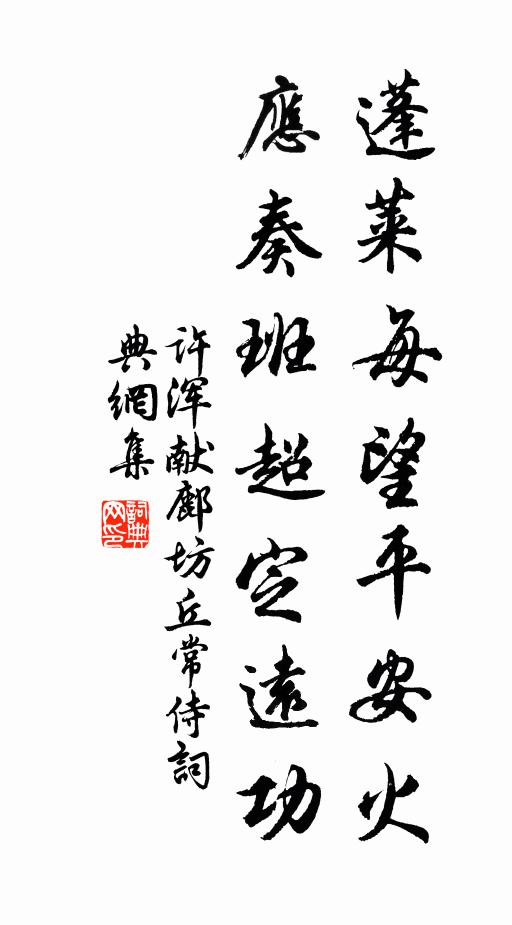 蓬萊每望平安火
應奏班超定遠功
许浑献鄜坊丘常侍詞
典網集
詞典网印